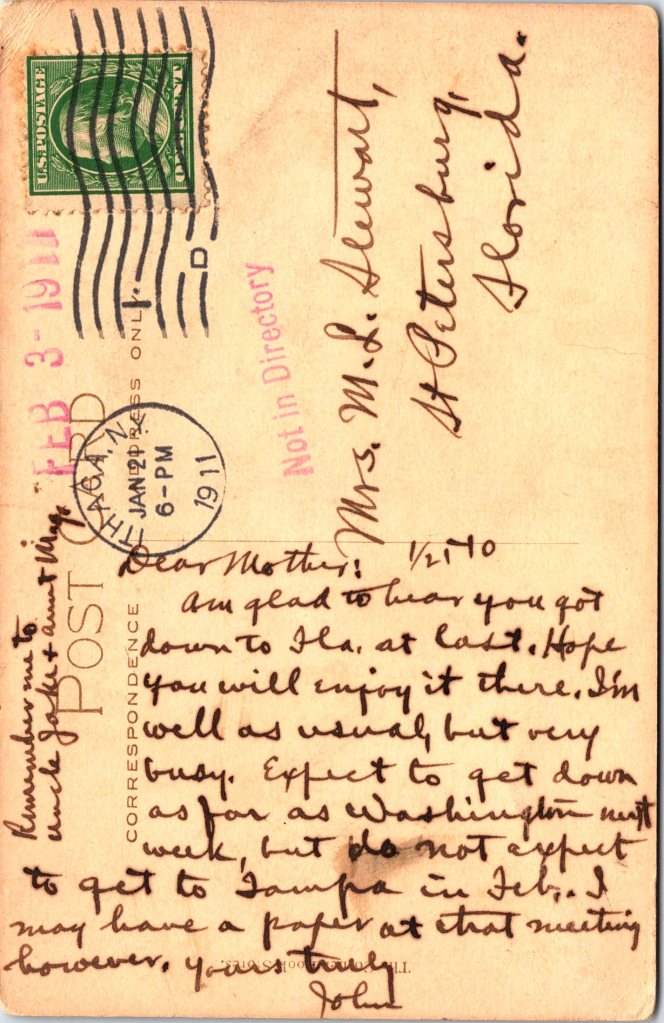 U.S.POSTAGE
FEB 3-1911
ITHACA, N.Y.
JAN 21
6-PM
1911
D
POST CARD
ADDRESS ONLY
CORRESPONDENCE
Not in Directory
Mrs. M. L. Stewart,
St Petersburg,
Florida.
Dear Mother: 1/21/10
Am glad to hear you got
down to Fla. at last. Hope
you will enjoy it there. I'm
well as usual, but very
busy. Expect to get down
as far as Washington next
week, but do not expect
to get to Tampa in Feb. I
may have a paper at that meeting
however. Yours truly
John
Remember me to
Uncle Jake + Aunt Mag.